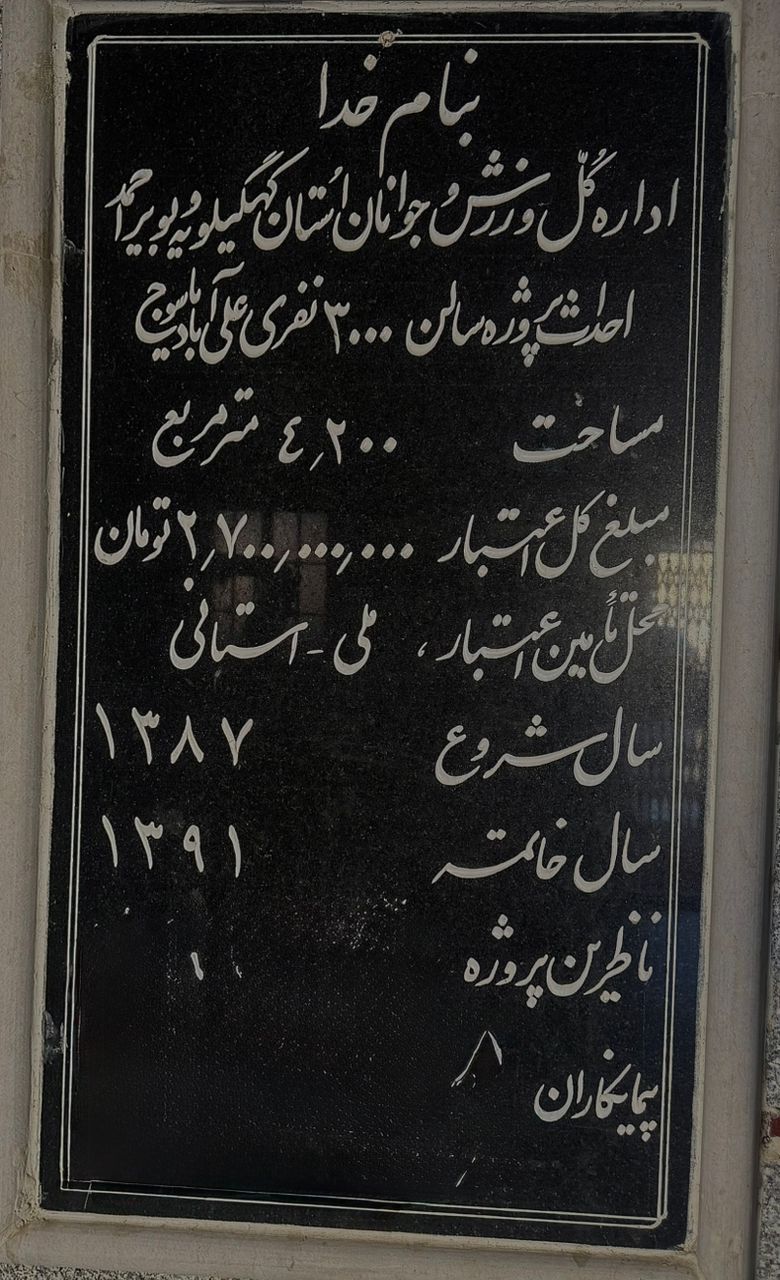 بنام خدا
اداره کُلّ ورزش و جوانان اُستان کهگیلویه و بویراحمد
احداث پروژه سالن ۳۰۰۰ نفری علی آباد یاسوج
مساحت ٤٫۲۰۰ متر مربع
مبلغ کل اعتبار ۲٫۷۰۰٫۰۰۰٫۰۰۰ تومان
محلّ تأمین اعتبار، ملی - استانی
سال شروع ۱۳۸۷
سال خاتمه ۱۳۹۱
ناظرین پروژه
پیمانکاران